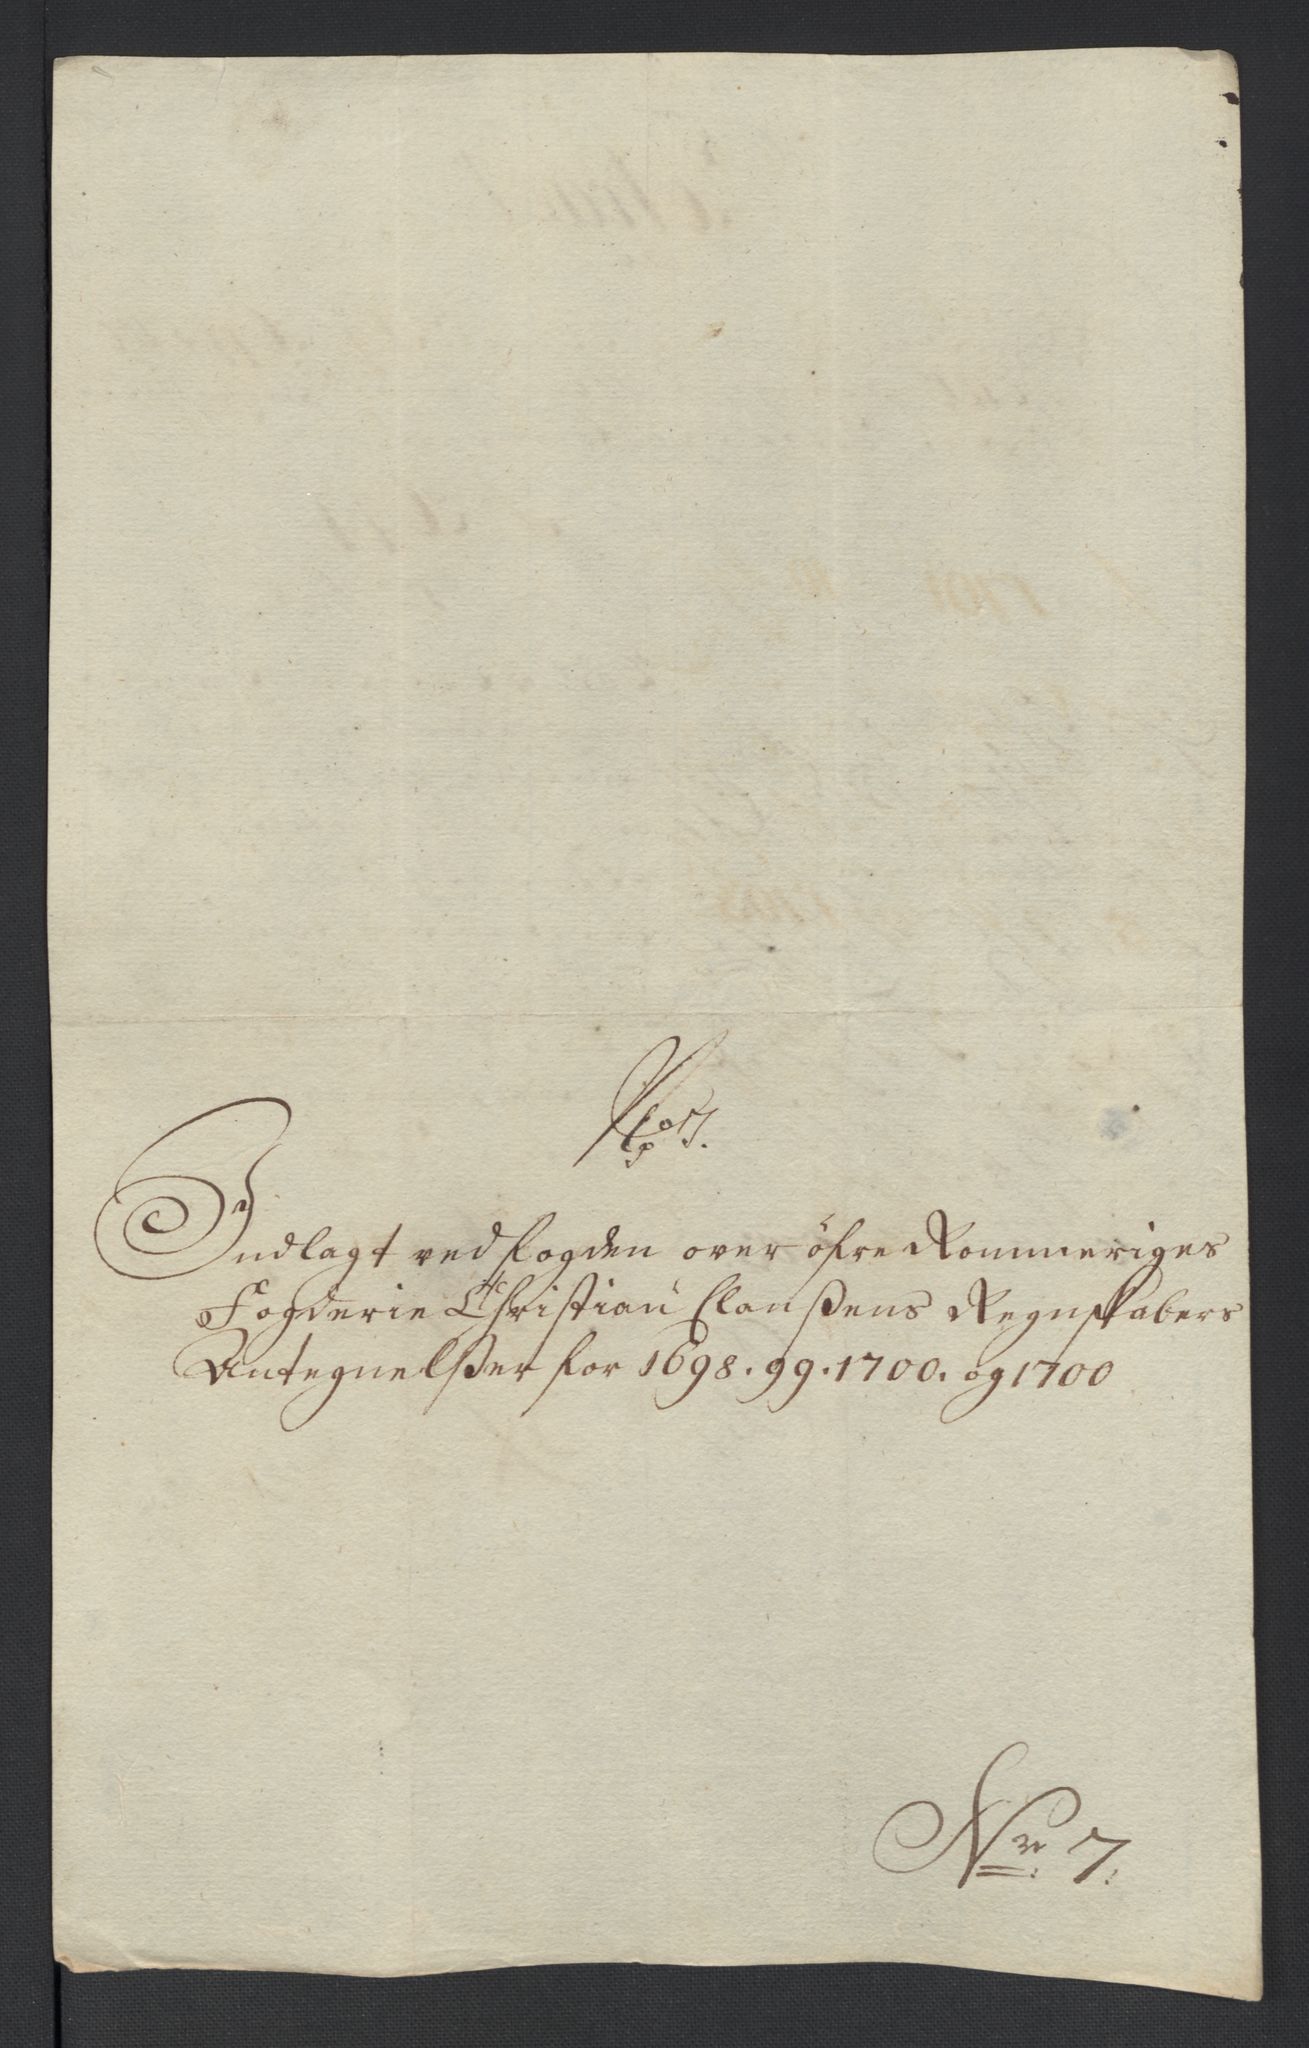 Indlagt ved fogden over öfre Rommeriges
Fogderie Christian Clausens Regnskabers
Antegnelsser for 1698. 99. 1700. og 1700
Nr 7.